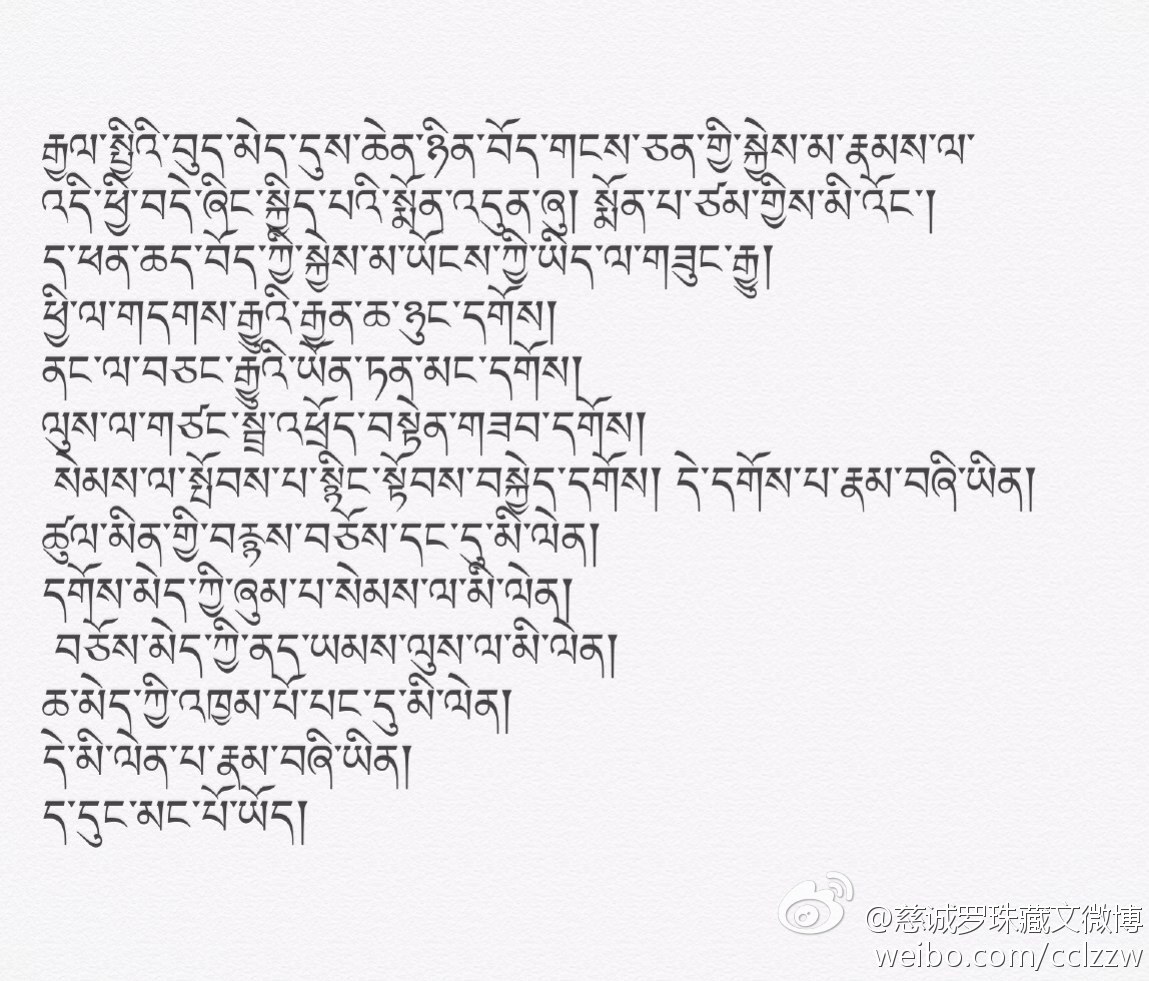 རྒྱལ་སྤྱིའི་བུད་མེད་དུས་ཆེན་ཉིན་བོད་གངས་ཅན་གྱི་སྐྱེས་མ་རྣམས་ལ་
འདི་ཕྱི་བདེ་ཞིང་སྐྱིད་པའི་སྨོན་འདུན་ཞུ། སྨོན་པ་ཙམ་གྱིས་མི་འོང་།
ད་ཕན་ཆད་བོད་ཀྱི་སྐྱེས་མ་ཡོངས་ཀྱི་ཡིད་ལ་གཟུང་རྒྱུ།
ཕྱི་ལ་གདགས་རྒྱུའི་རྒྱན་ཆ་ཉུང་དགོས།
ནང་ལ་བཅང་རྒྱུའི་ཡོན་ཏན་མང་དགོས།
ལུས་ལ་གཙང་སྦྲ་འཕྲོད་བསྟེན་གཟབ་དགོས།
སེམས་ལ་སྤོབས་པ་སྙིང་སྟོབས་བསྐྱེད་དགོས། དེ་དགོས་པ་རྣམ་བཞི་ཡིན།
ཚུལ་མིན་གྱི་བརྙས་བཅོས་དང་དུ་མི་ལེན།
དགོས་མེད་ཀྱི་ཞུམ་པ་སེམས་ལ་མི་ལེན།
བཅོས་མེད་ཀྱི་ནད་ཡམས་ལུས་ལ་མི་ལེན།
ཆ་མེད་ཀྱི་འཁྱམ་པོ་པང་དུ་མི་ལེན།
དེ་མི་ལེན་པ་རྣམ་བཞི་ཡིན།
ད་དུང་མང་པོ་ཡོད།
@慈诚罗珠藏文微博
weibo.com/cclzzw